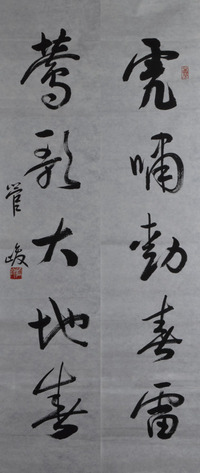 虎啸动春雷
莺歌大地春
管峻